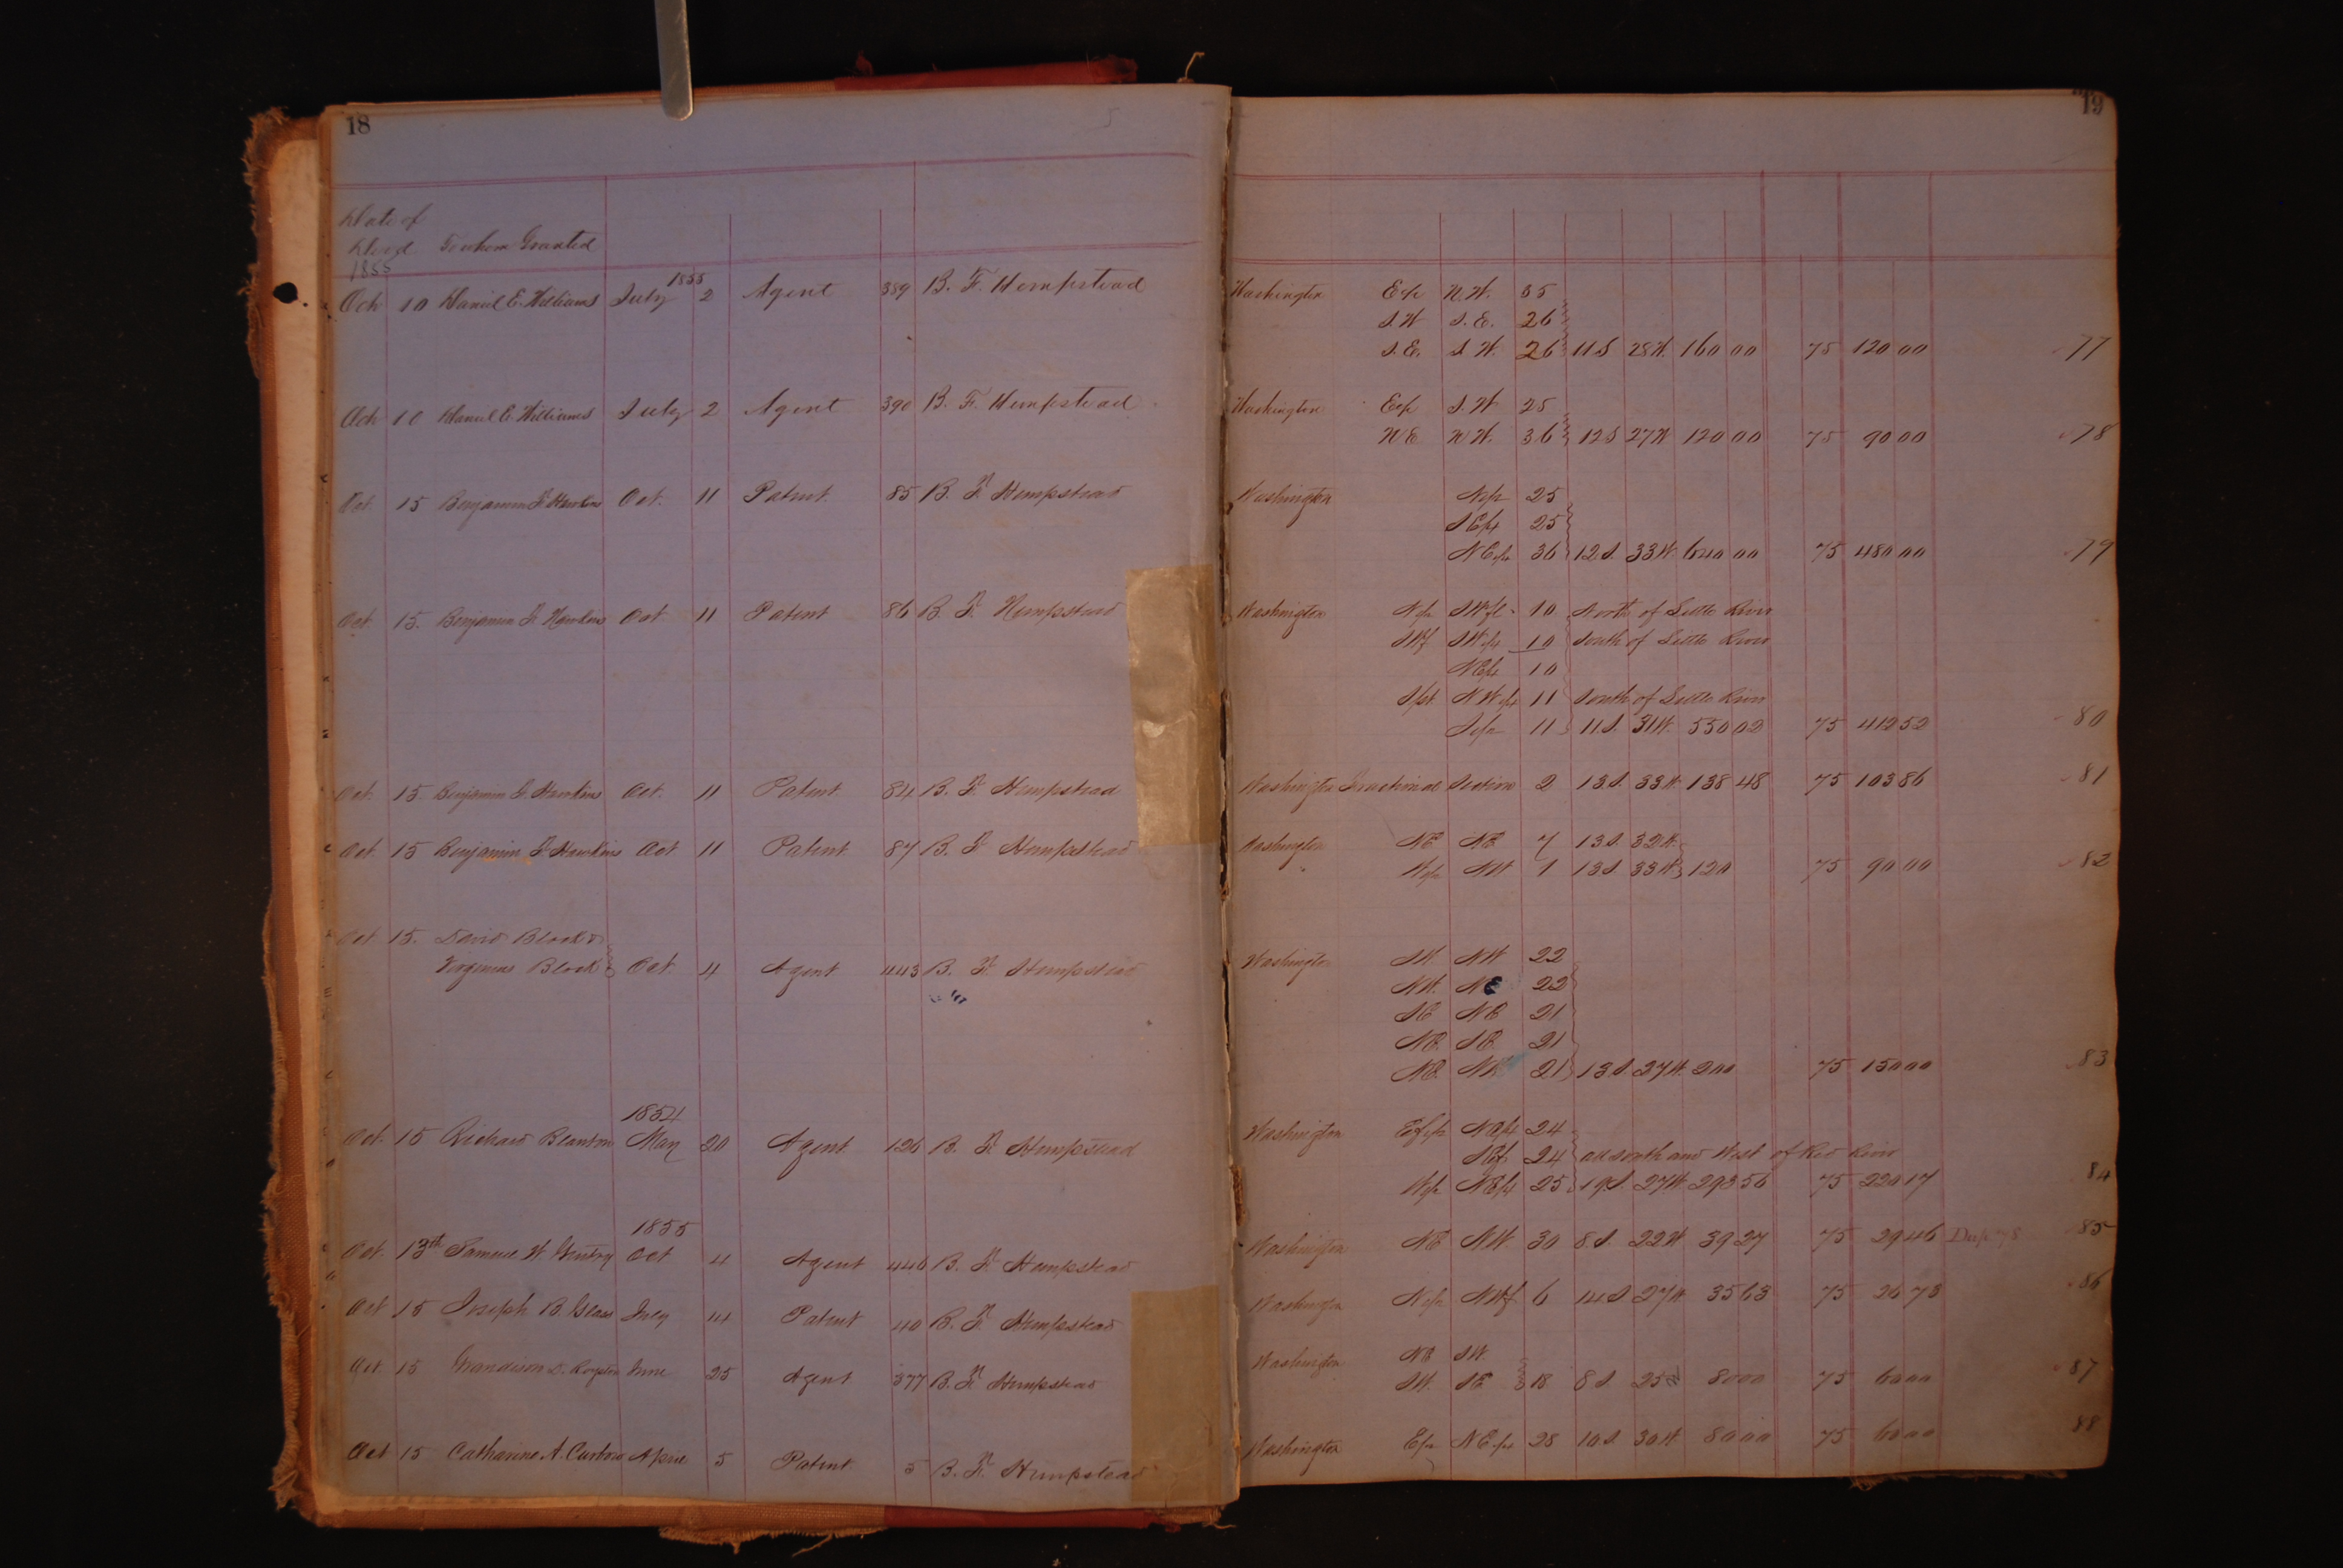 18
19
Date of
Deed To whom Granted
1855
1855
Oct 10 Daniel E. Williams July 2 Agent 389 B. F. Hempstead Washington E1/2 N.W. 35
S.W S.E. 26
S.E. S.W. 26 11S 28W. 160 00 75 120 00 77
Oct 10 Daniel E. Williams July 2 Agent 390 B. F. Hempstead Washington E1/2 S.W 25
NE NW. 36 12S 27W 120 00 75 90 00 78
Oct. 15 Benjamin F. Hawkins Oct. 11 Patent 85 B. F. Hempstead Washington N1/2 25
SE1/4 25
NE1/4 36 12S. 33W. 640 00 75 480 00 79
Oct. 15. Benjamin F. Hawkins Oct 11 Patent 86 B. F. Hempstead Washington 10 North of Little River
SWf SW1/4 10 South of Little River
NE1/4 10
Spt. NW1/4 11 South of Little River
S1/2 11 11S. 31W. 550 02 75 412 52 80
Oct. 15. Benjamin F. Hawkins Oct. 11 Patent 84 B. F. Hempstead Washington Fractional Section 2 13S. 33W. 138 48 75 103 86 81
Oct. 15 Benjamin F. Hawkins Oct 11 Patent 87 B. F. Hempstead Washington NE NE 7 13S. 32W.
NW 1 13S 33W. 120 75 90 00 82
Oct 15. David Block &
Virginius Block Oct. 4 Agent 443 B. F. Hempstead Washington SW NW 22
NW. NE 22
SE NE 21
NE. SE. 21
NE. NW 21 13S. 27W. 200 75 150 00 83
1854
Oct. 15 Richard Blanton May 20 Agent 126 B. F. Hempstead Washington NE1/4 24
24 all South and West of Red River
NE1/4 25 19S. 27W 293 56 75 220 17 84
1855
Oct. 13th Samuel W. Gentry Oct 4 Agent 446 B. F. Hempstead Washington NE NW. 30 8S. 22W 39 27 75 29 46 85
Oct 15 Joseph B. Glass July 14 Patent 40 B. F. Hempstead Washington N1/2 NWf 6 14S 27W 35 63 75 26 73 86
Oct. 15 Grandison D. Royston June 25 Agent 377 B. F. Hempstead Washington NE SW
SW. SE 18 8S. 25 80 00 75 60 00 87
Oct 15 Catharine A. Curtow April 5 Patent 5 B. F. Hempstead Washington E1/2 NE1/4 28 10S. 30W 80 00 75 60 00 88